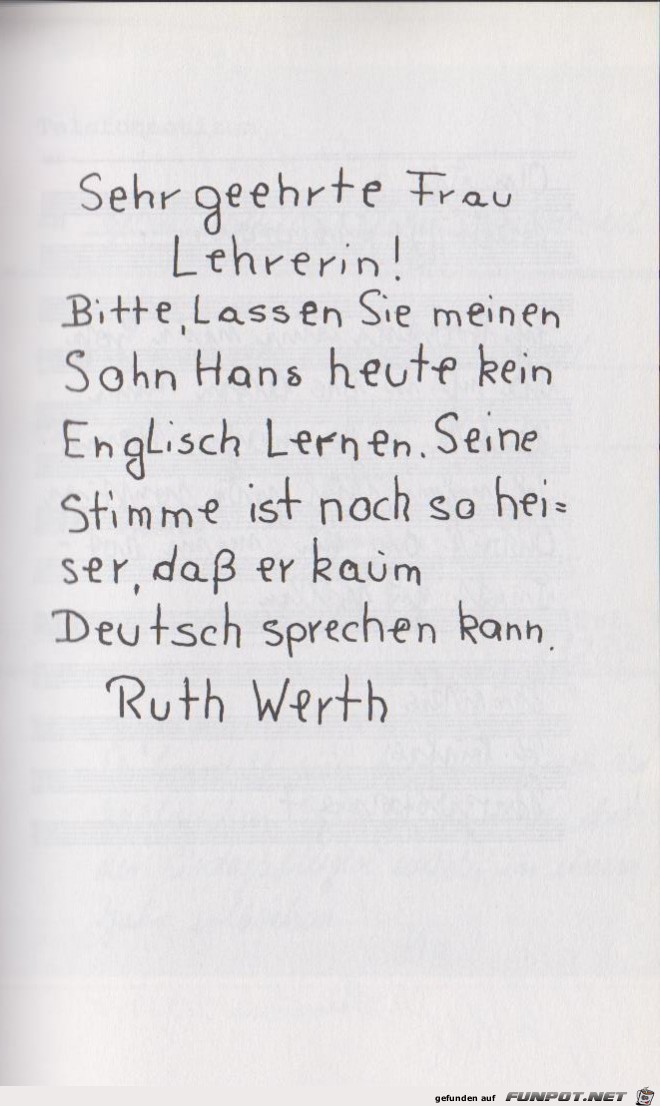 Sehr geehrte Frau
Lehrerin!
Bitte, Lassen Sie meinen
Sohn Hans heute kein
Englisch Lernen. Seine
Stimme ist noch so hei=
ser, daß er kaum
Deutsch sprechen kann.
Ruth Werth
gefunden auf FUNPOT.NET